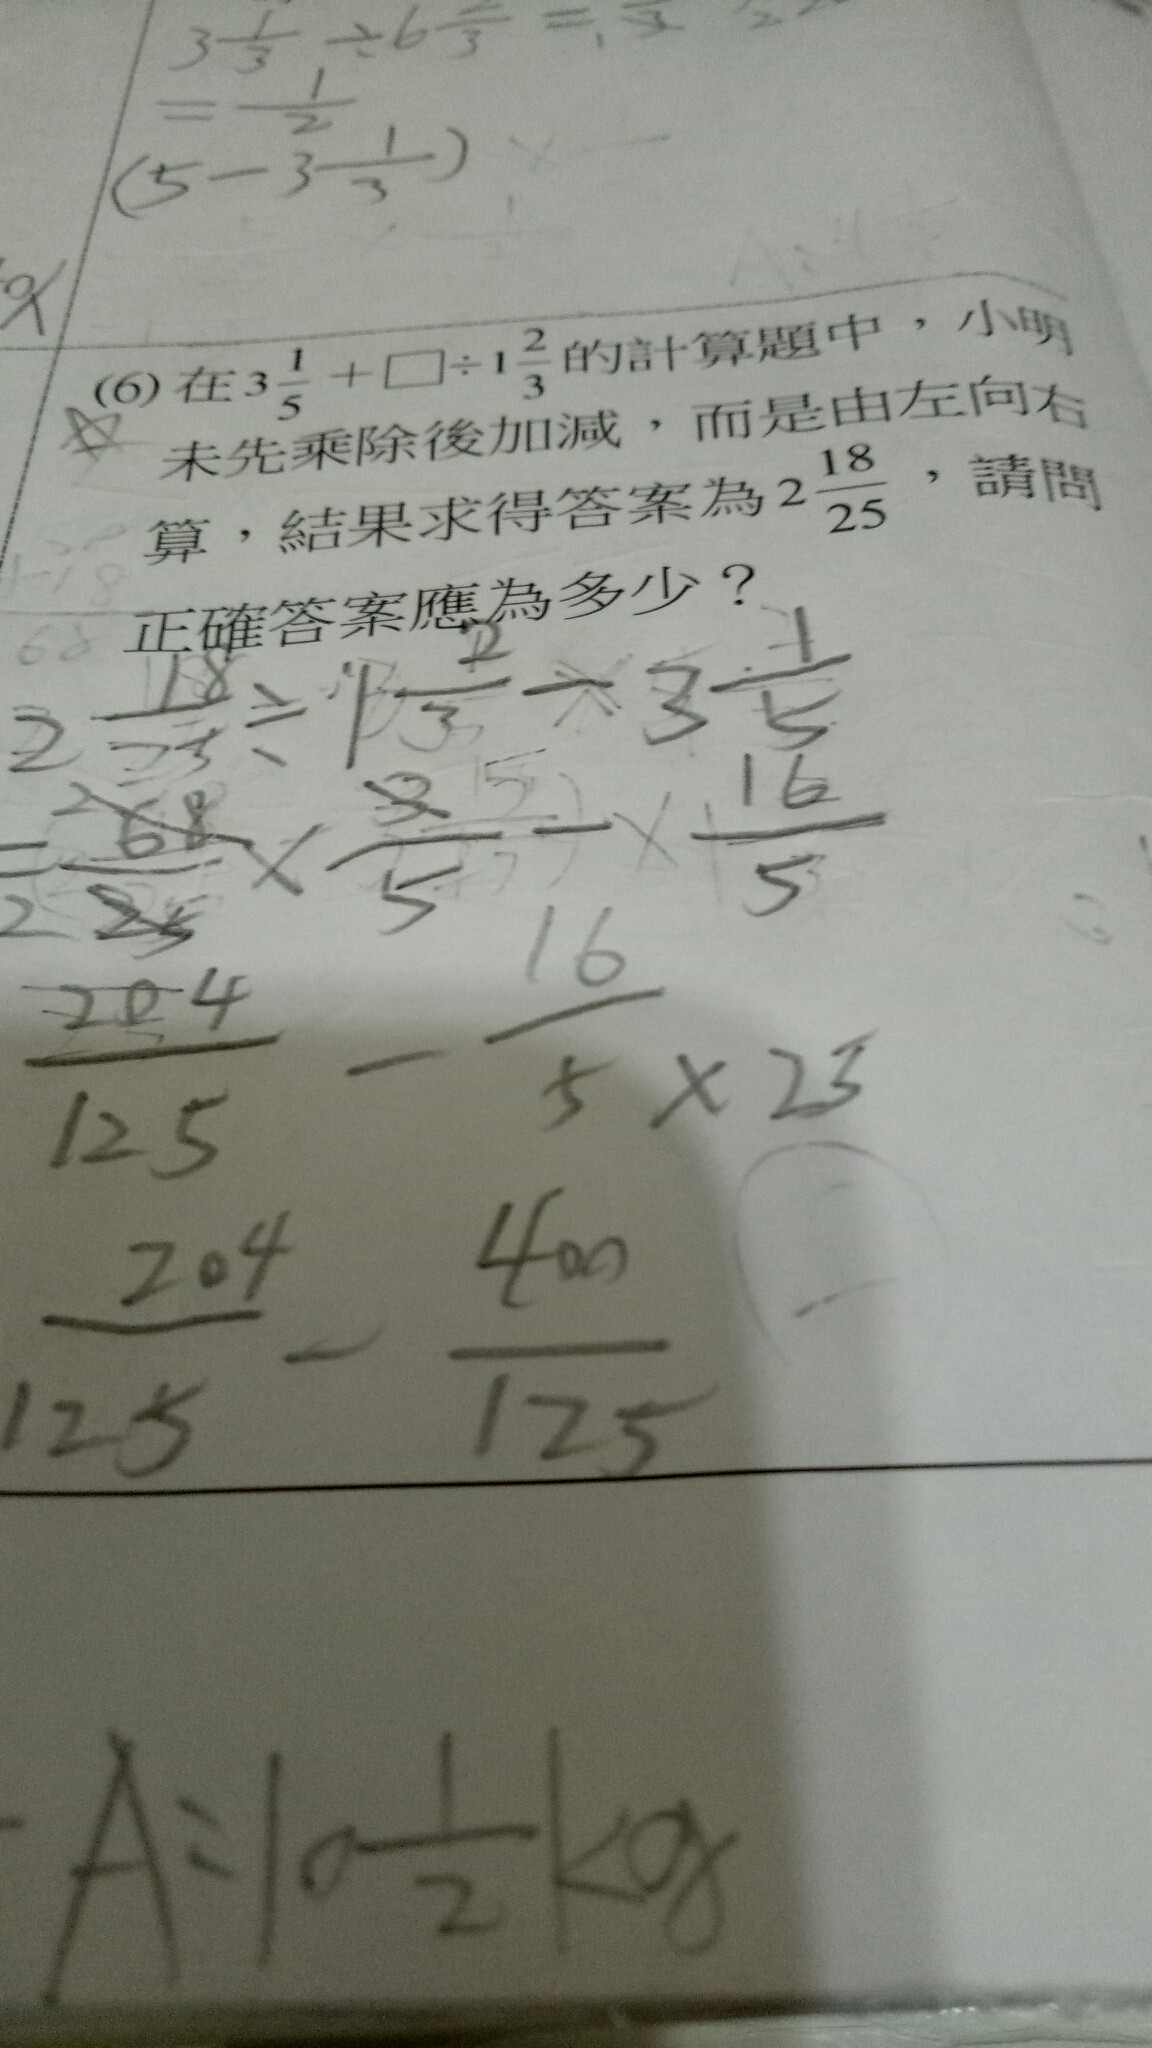 3 1/3 ÷ 6 2/3 =
= 1/2
(5 - 3 1/3)
(6) 在3 1/5 + □ ÷ 1 2/3 的計算題中，小明
未先乘除後加減，而是由左向右
算，結果求得答案為2 18/25，請問
正確答案應為多少？
2 18/25 ÷ 1 2/3 - 3 1/5
= 68/25 × 3/5 - 16/5
204/125 - 16/5 × 25
204/125 - 400/125
A: 10 1/2 kg